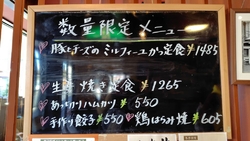 数量限定メニュー
豚とチーズのミルフィーユかつ定食 ¥1485
生姜焼き定食 ¥1265
あつぎりハムカツ ¥550
手作り餃子 ¥550 鶏はらみ焼 ¥605